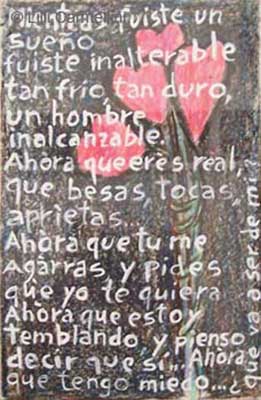 Mientras fuiste un
sueño
fuiste inalterable
tan frio, tan duro,
un hombre
inalcanzable.
Ahora que eres real,
que besas, tocas,
aprietas...
Ahora que tu me
Agarras y pides
que yo te quiera
Ahora que estoy
temblando, y pienso
decir que sí... Ahora
que tengo miedo...¿
que va a ser de mi?